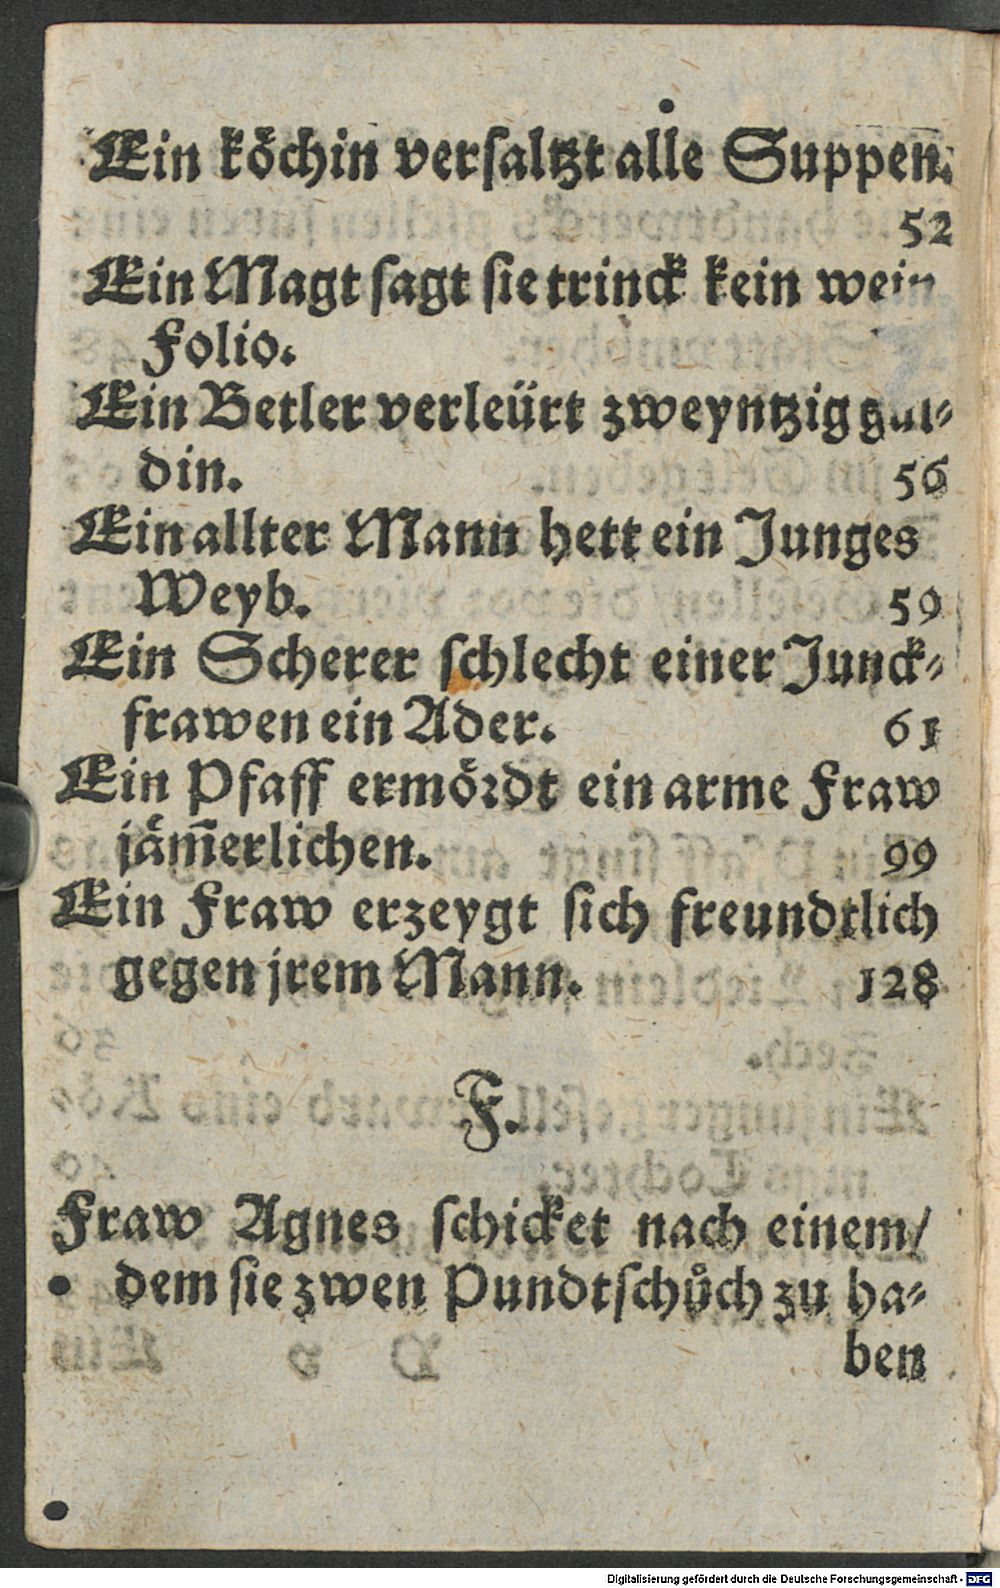 Ein koͤchin versaltzt alle Suppen.
52
Ein Magt sagt sie trinck kein wein
Folio.
Ein Betler verleürt zweyntzig gul⸗
din. 56
Ein allter Mann hett ein Junges
Weyb. 59
Ein Scherer schlecht einer Junck⸗
frawen ein Ader. 61
Ein Pfaff ermoͤrdt ein arme Fraw
jaͤm̄erlichen. 99
Ein Fraw erzeygt sich freundtlich
gegen jrem Mann. 128
F.
Fraw Agnes schicket nach einem/
dem sie zwen Pundtschuͦch zu ha⸗
ben
Digitalisierung gefördert durch die Deutsche Forschungsgemeinschaft - DFG